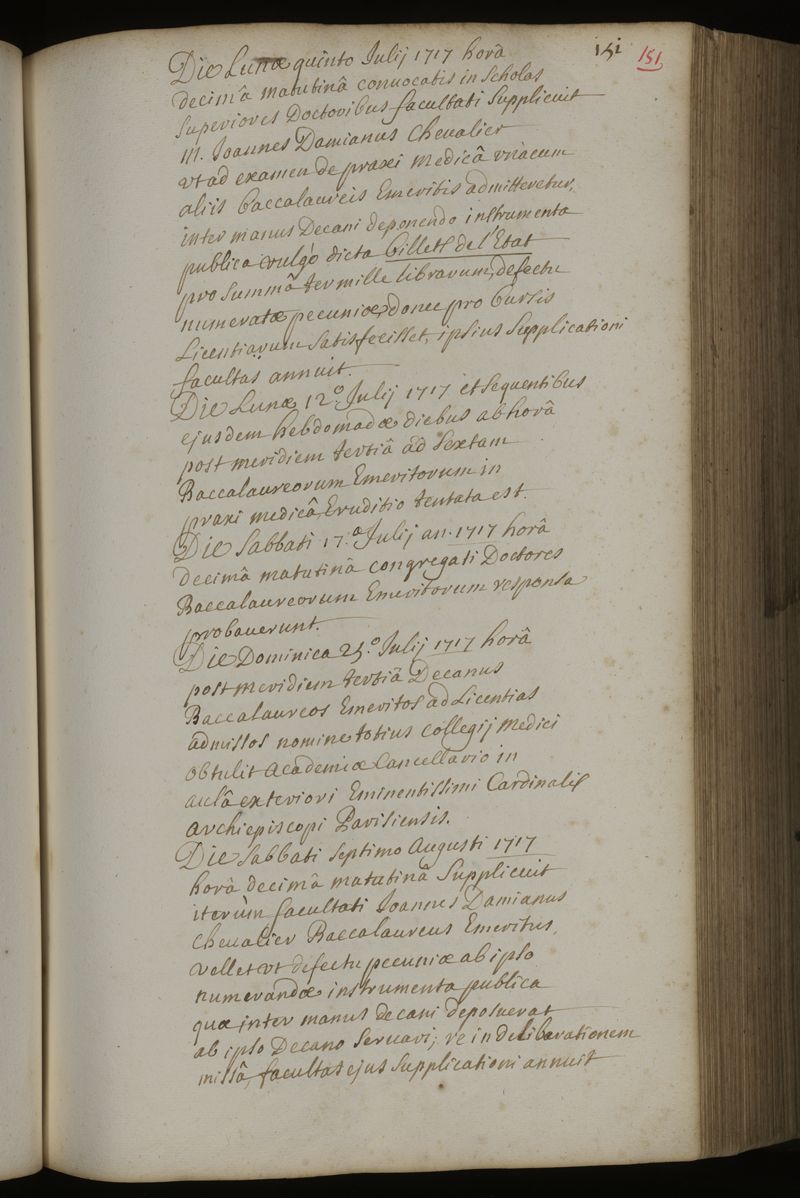 151 151
Die Lunæ quinto Julij 1717 horâ
decimâ matutinâ convocatis in Scholas
Superiores Doctoribus facultati Supplicuit
M. Joannes Damianus Chevalier
vt ad examen de praxi Medicâ vnàcum
aliis baccalaureis Emeritis admitteretur,
inter manus Decani deponendo instrumenta
publica vulgò dicta billets de l'Etat
pro Summâ ter mille librarum, defectu
numeratæ pecuniæ, donec pro bursis
Licentiarum Satisfecisset, ipsius Supplicationi
facultas annuit.
Die Lunæ 12.º Julij 1717 et Sequentibus
ejusdem hebdomadæ diebus ab horâ
post meridiem tertiâ ad Sextam
Baccalaureorum Emeritorum in
praxi medicâ Eruditio tentata est.
Die Sabbati 17.ª Julij an. 1717 horâ
decimâ matutinâ congregati Doctores
Baccalaureorum Emeritorum responsa
probaverunt.
Die Dominica 25.º Julij 1717 horâ
post meridiem tertiâ Decanus
Baccalaureos Emeritos ad Licentias
admissos nomine totius Collegij Medici
obtulit Academiæ Cancellario in
aulâ exteriori Eminentissimi Cardinalis
Archiepiscopi Parisiensis.
Die Sabbati Septimo Augusti 1717
horâ decimâ matutinâ Supplicuit
iterùm facultati Joannes Damianus
Chevalier Baccalaureus Emeritus,
vellet vt defectu pecuniæ ab ipso
numerandæ instrumenta publica
quæ inter manus decani deposuerat
ab ipso Decano Servari; re in deliberationem
missâ, facultas ejus Supplicationi annuit